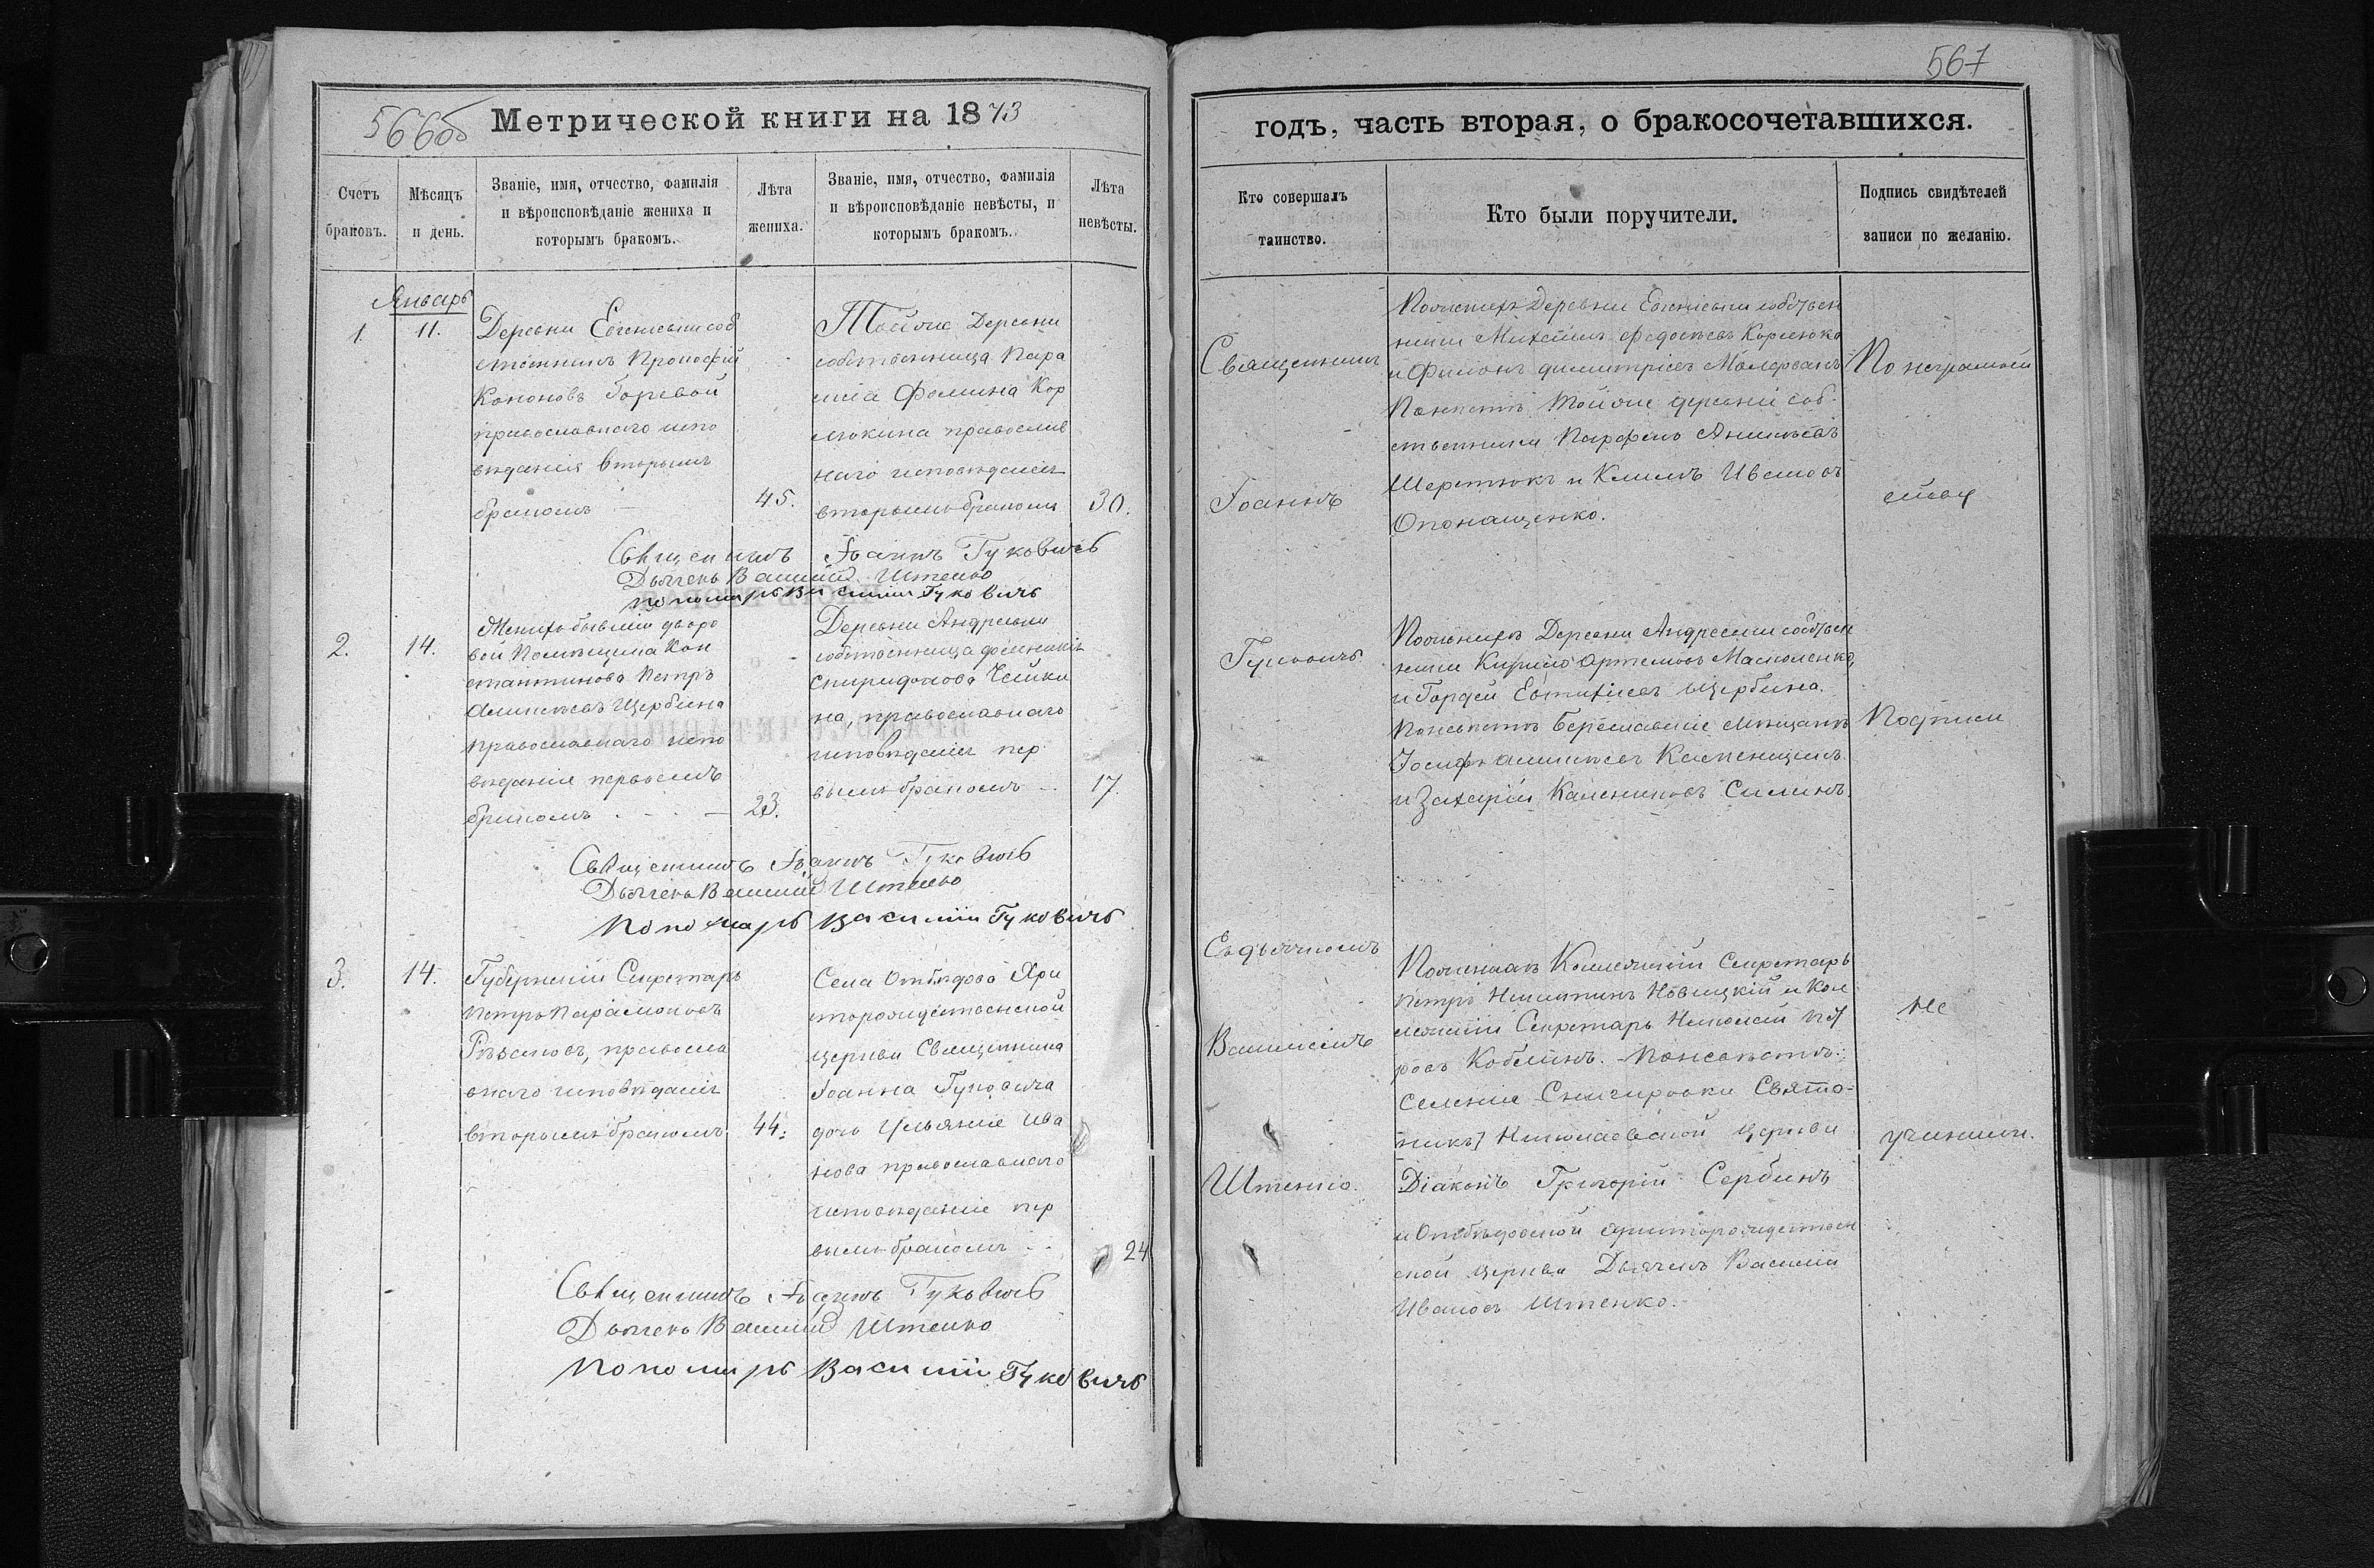 566об
Метрической книги на 1873
Счетъ
браковъ.
Мѣсяцъ
и день.
Званіе, имя, отчество, фамилія
и вѣроисповѣданіе жениха и
которымъ бракомъ.
Лѣта
жениха.
Званіе, имя, отчество, фамилія
и вѣроисповѣданіе невѣсты, и
которымъ бракомъ.
Лѣта
невѣсты.
Январь
1.
11.
Деревни Евгеньевки соб
ственникъ Прокофій
Кононовъ Горевой
православнаго испо
вѣданія вторымъ
бракомъ
45.
Тойже Деревни
собственница Пара
Фомина Кор
нюкина православ
наго исповѣданія
вторымъ бракомъ
30.
Священникъ Іоаннъ Гуковичъ
Дьячекъ Василій Штенко
Пономарь Василій Гуковичъ
2.
14.
Женихъ бывшій дворо
вой Помѣщика Кон
стантинова Петръ
Алексѣевъ Щербина
православнаго испо
вѣданія первымъ
бракомъ
23.
Деревни Андреевки
собственница
Спиридонова Чайки
на, православнаго
исповѣданія пер
вымъ бракомъ
17.
Священникъ Іоаннъ Гуковичъ
Дьячекъ Василій Штенко
Пономарь Василій Гуковичъ
3.
14.
Губернскій Секретарь
Петръ Парамоновъ
Рѣзановъ, правосла
внаго исповѣданія
вторымъ бракомъ
44.
Села Отбѣдова Хри
сторождественской
церкви Священника
Іоанна Гуковича
дочь Ульянія Ива
нова православнаго
исповѣданія пер
вымъ бракомъ
24
Священникъ Іоаннъ Гуковичъ
Дьячекъ Василій Штенко
Пономарь Василій Гуковичъ
567
годъ, часть вторая, о бракосочетавшихся.
Кто совершалъ
таинство.
Кто были поручители.
Подпись свидѣтелей
записи по желанію.
Священникъ
Іоаннъ
Гуковичъ
Съ дьячкомъ
Василіемъ
Штенко.
По женихѣ Деревни Евгеньевки собствен
ники Михаилъ Федосѣевъ Корнюка
и Филонъ Димитріевъ
По невѣстѣ Тойже деревни соб
ственники Парфенъ
Шерстюкъ и Климъ Ивановъ
Опонащенко.
По женихѣ Деревни Андреевки собствен
ники Кирило Артемовъ Маслоленко,
и Гордей Евтихіевъ Щербина.
По невѣстѣ Бериславскіе мещане
Іосифъ Алексѣевъ
и Захарій Силинъ.
По женихѣ Коллежскій Секретарь
Петръ Никитинъ Новицкій и Кол
лежскій Секретарь Николай Пет
ровъ Коблинъ. - По невѣстѣ:
Селенія Снигировки Свято-
Николаевской церкви
Діаконъ Григорій Сербинъ
и Отбѣдовской Христорождествен
ской церкви Дьячекъ Василій
Ивановъ Штенко.
По неграмот
ству
Подписи
не
учинили.